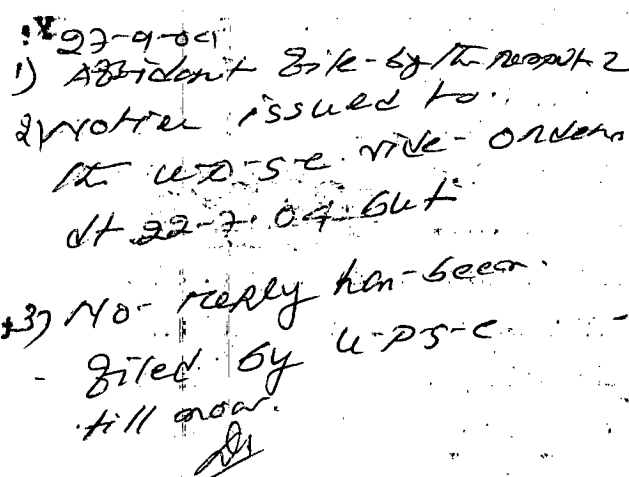 27-9-04
1) Affidavit file-by the Respdt 2
2) Notice issued to
the U-P-S-C vide-orders
dt 22-7-04-but
3) No-reply has-been
filed by U-P-S-C
till now.